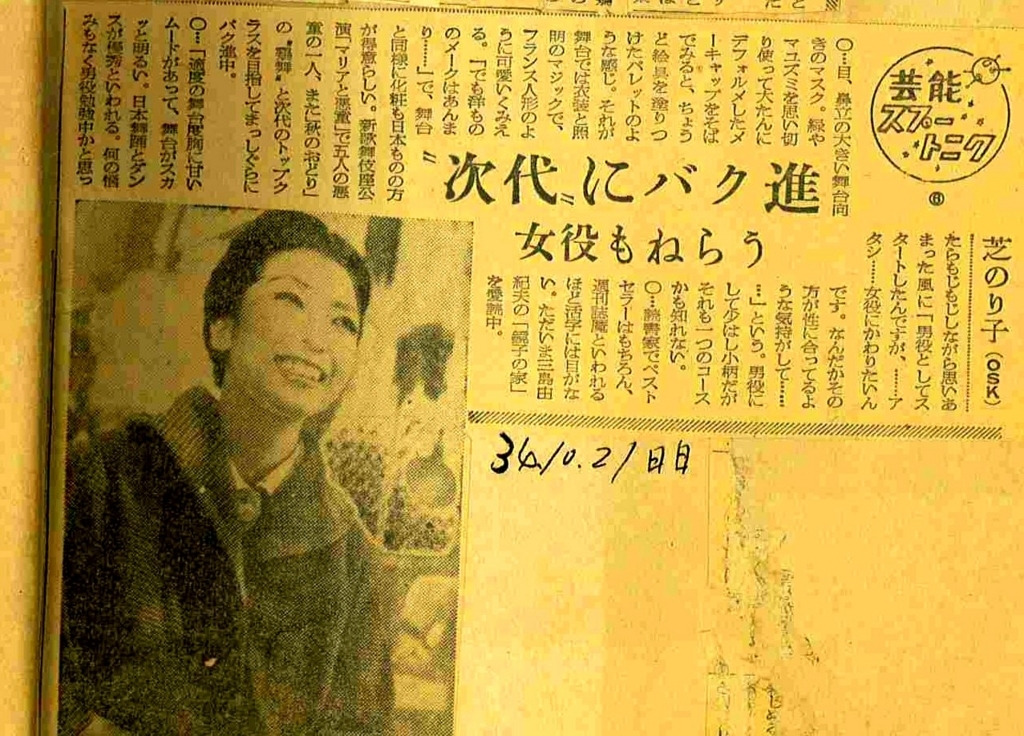 芸能
スプートニク
⑥
芝のり子（OSK）
〝次代〟にバク進
女役もねらう
〇…目、鼻立の大きい舞台向
きのマスク。緑や
マユズミを思い切
り使って大たんに
デフォルメしたメ
ーキャップをそば
でみると、ちょう
ど絵具を塗りつ
けたパレットのよ
うな感じ。それが
舞台では衣装と照
明のマジックで、
フランス人形のよ
うに可愛いくみえ
る。「でも洋もの
のメークはあんま
り……」で、舞台
と同様に化粧も日本ものの方
が得意らしい。新歌舞伎座公
演「マリアと悪童」で五人の悪
童の一人、また「秋のおどり」
の〝鶴舞〟と次代のトップク
ラスを目指してまっしぐらに
バク進中。
〇…「適度の舞台度胸に甘い
ムードがあって、舞台がスカ
ッと明るい。日本舞踊とダン
スが優秀といわれる。何の悩
みもなく男役勉強中かと思っ
たらもじもじしながら思いあ
まった風に「男役としてス
タートしたんですが、……ア
タシ……女役にかわりたいん
です。なんだかその
方が性に合ってるよ
うな気持がして……
…」という。男役に
して少はし小柄だが
それも一つのコース
かも知れない。
〇…読書家でベスト
セラーはもちろん、
週刊誌魔といわれる
ほど活字には目がな
い。ただいま三島由
紀夫の「鏡子の家」
を愛読中。
34.10.21 日日